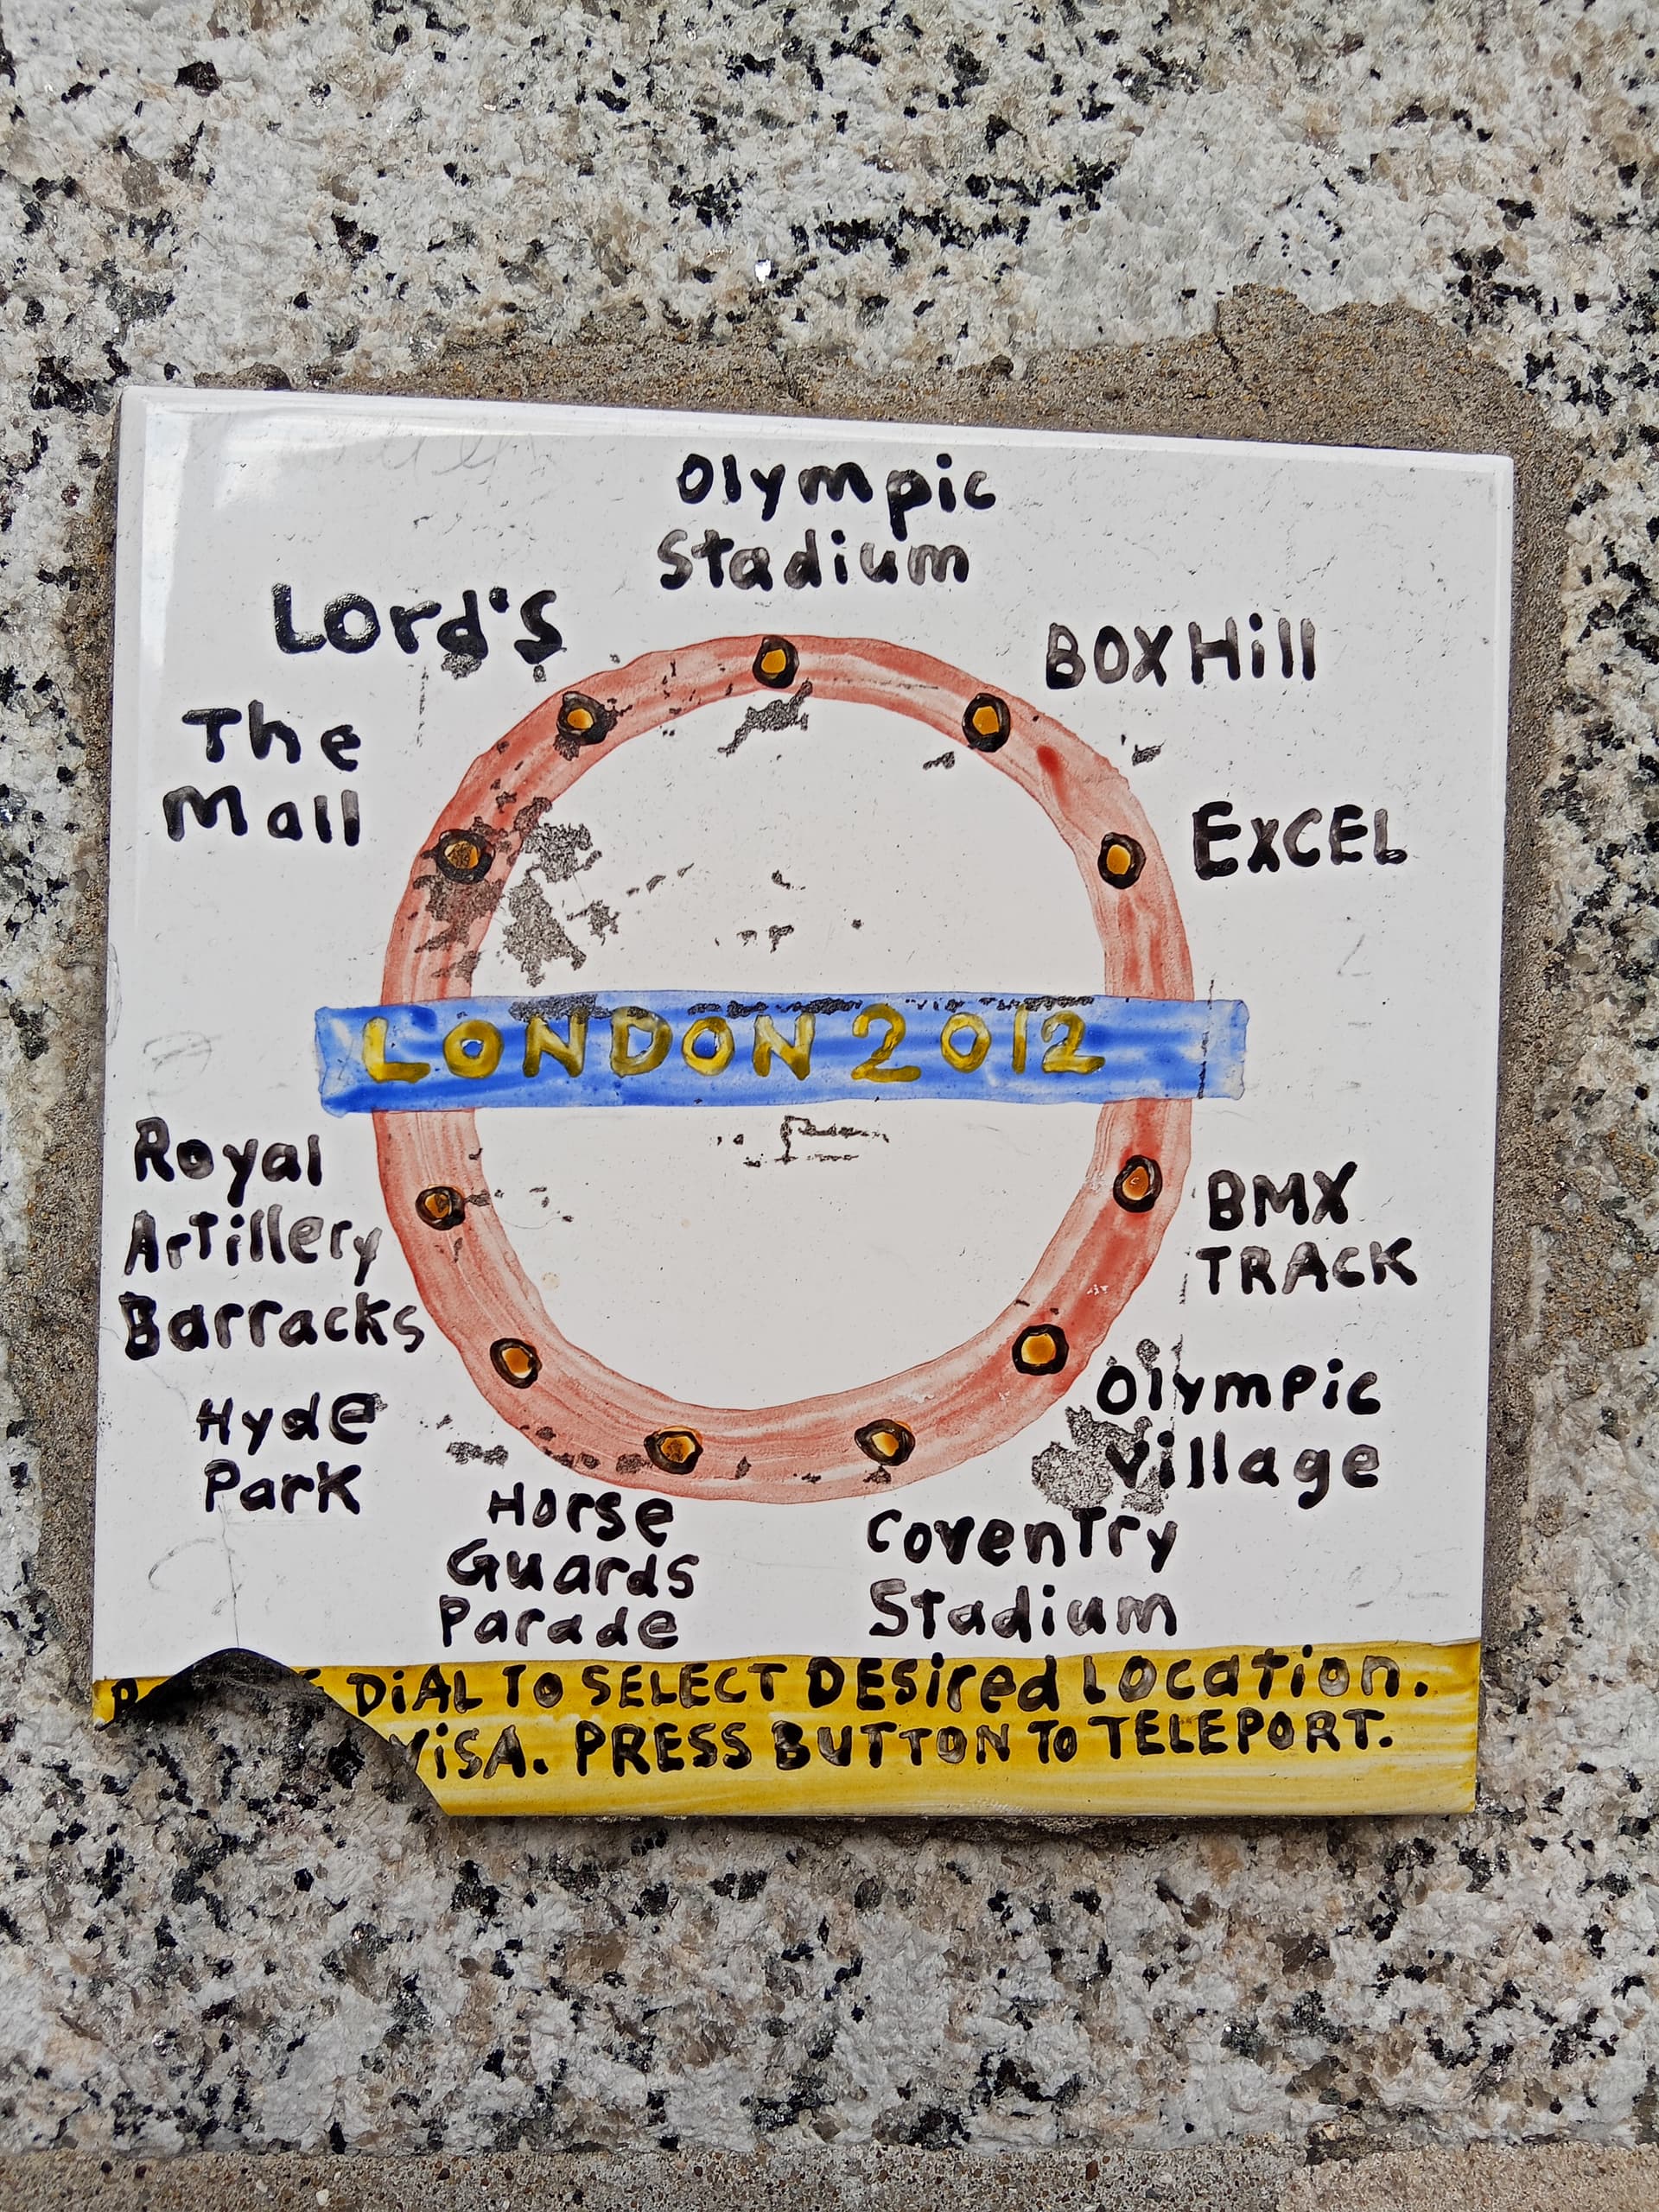 Olympic
Stadium
Lord's
BOX Hill
The
Mall
EXCEL
LONDON 2012
Royal
Artillery
Barracks
BMX
TRACK
Olympic
Village
Hyde
Park
Horse
Guards
Parade
Coventry
Stadium
DIAL TO SELECT DESired Location.
VISA. PRESS BUTTON TO TELEPORT.